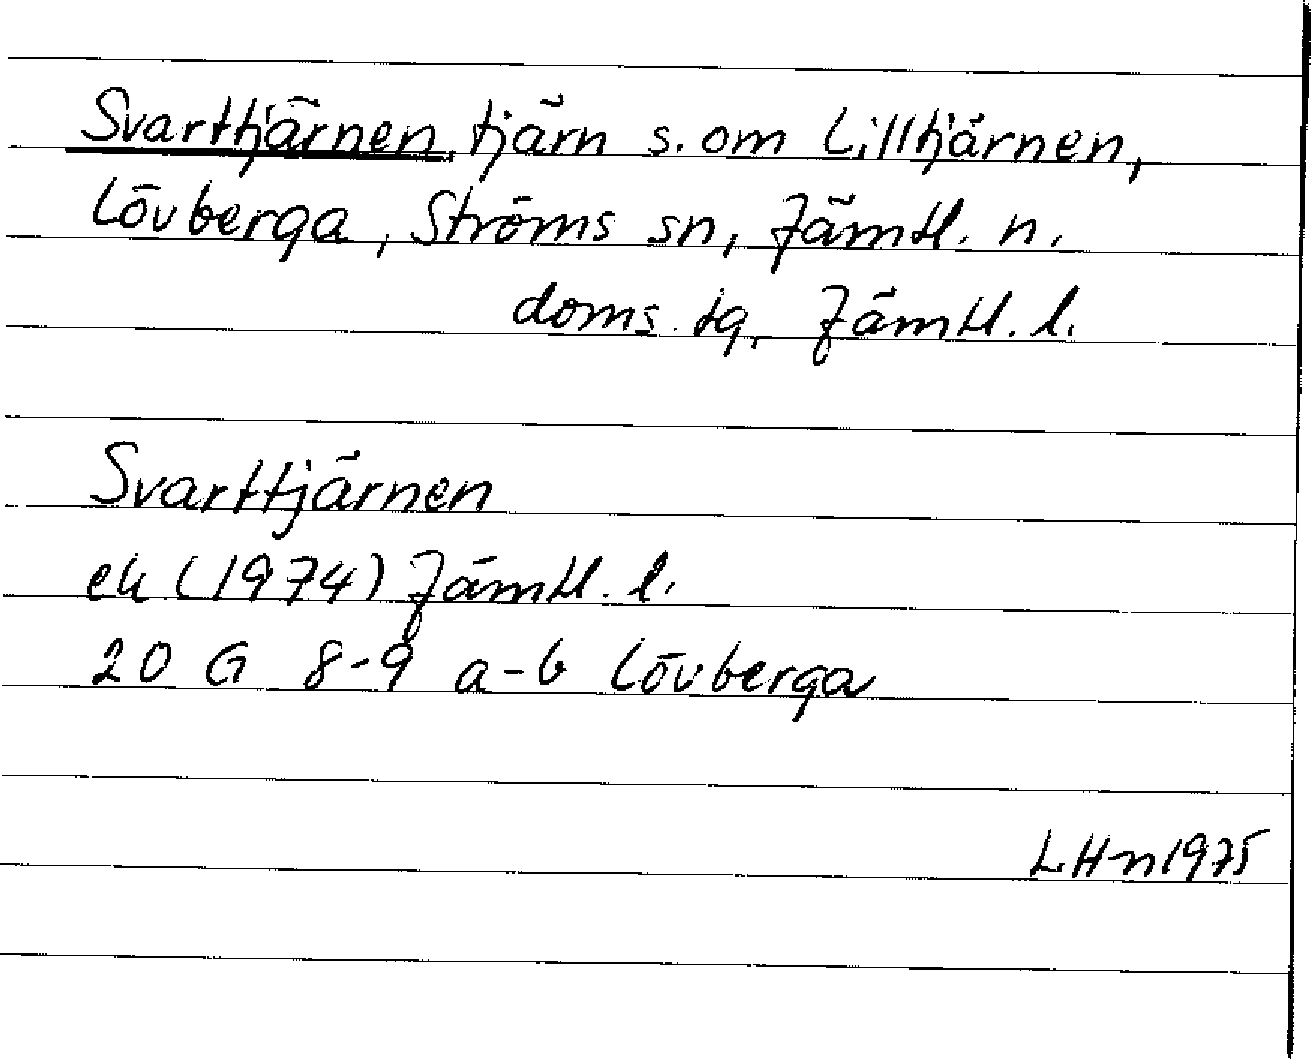 Svarttjärnen, tjärn s. om Lilltjärnen,
Lövberga, Ströms sn, Jämtl. n.
doms. tg, Jämtl. l.
Svarttjärnen
ek (1974) Jämtl. l.
20 G 8-9 a-b Lövberga
LHn 1975